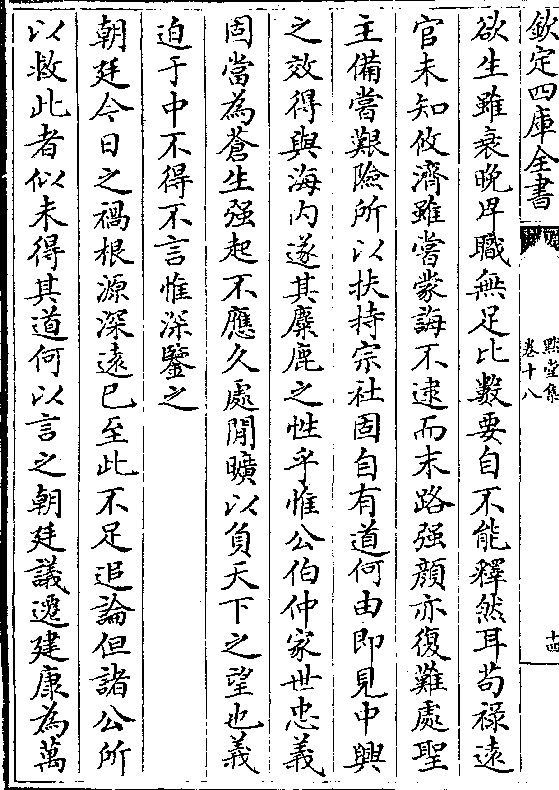 欽定四庫全書
默堂集
卷十八
十四
欲生雖衰晚卑職無足比數要自不能釋然耳苟祿遠
官未知攸濟雖嘗蒙誨不逮而末路强顔亦復難處聖
主備嘗艱險所以扶持宗社固自有道何由即見中興
之效得與海内遂其麋鹿之性乎惟公伯仲家世忠義
固當為蒼生强起不應久處閒曠以負天下之望也義
迫于中不得不言惟深鑒之
朝廷今日之禍根源深遠已至此不足追論但諸公所
以救此者似未得其道何以言之朝廷議遷建康為萬